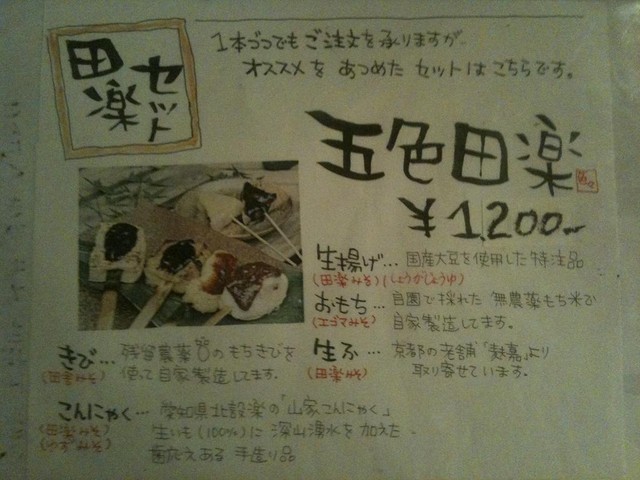 田楽
セット
1本づつでもご注文を承りますが
オススメを あつめた セットは こちらです。
五色田楽
¥1,200-
生揚げ… 国産大豆を使用した特注品
(田楽みそ)(しょうがじょうゆ)
おもち… 自園で採れた 無農薬もち米で
(エゴマみそ) 自家製造してます。
生ふ… 京都の老舗「麩嘉」より
(田楽みそ) 取り寄せています。
きび… 残留農薬0のもちきびを
(田楽みそ) 使って自家製造してます。
こんにゃく… 愛知県北設楽の「山家こんにゃく」
(田楽みそ) 生いも(100%)に 深山湧水を加えた
(ゆずみそ) 歯応えある 手造り品